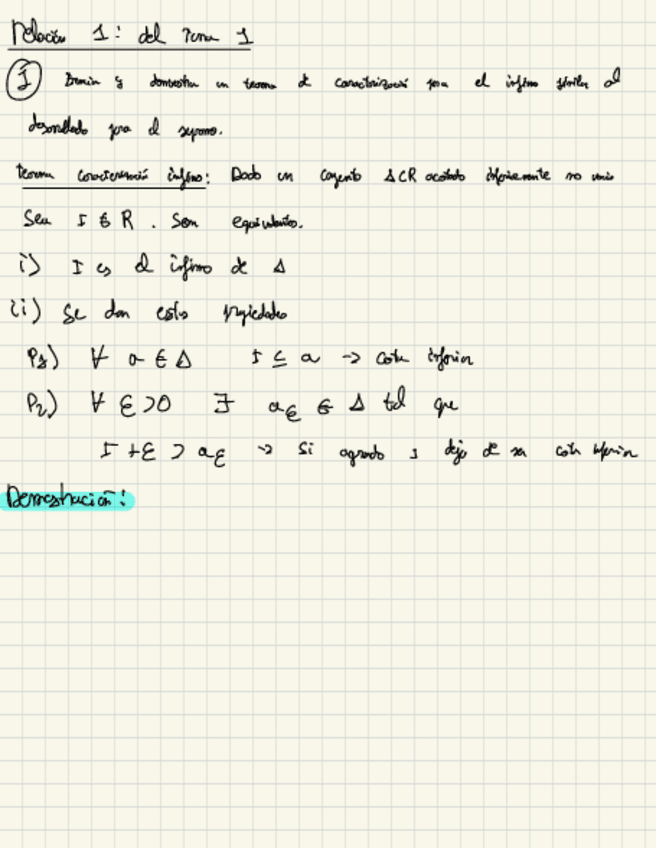 Relación 1: del Tema 1
① Enuncia y demuestra un teorema de caracterización para el ínfimo similar al
desarrollado para el supremo.
Teorema caracterización ínfimo: Dado un conjunto A ⊂ R acotado inferiormente no vacío
Sea I ∈ R. Son equivalentes.
i) I es el ínfimo de A
ii) Se dan estas propiedades
P1) ∀ a ∈ A I ≤ a -> cota inferior
P2) ∀ ε > 0 ∃ aε ∈ A tal que
I + ε > aε -> Si agrando I deja de ser cota inferior
Demostración: